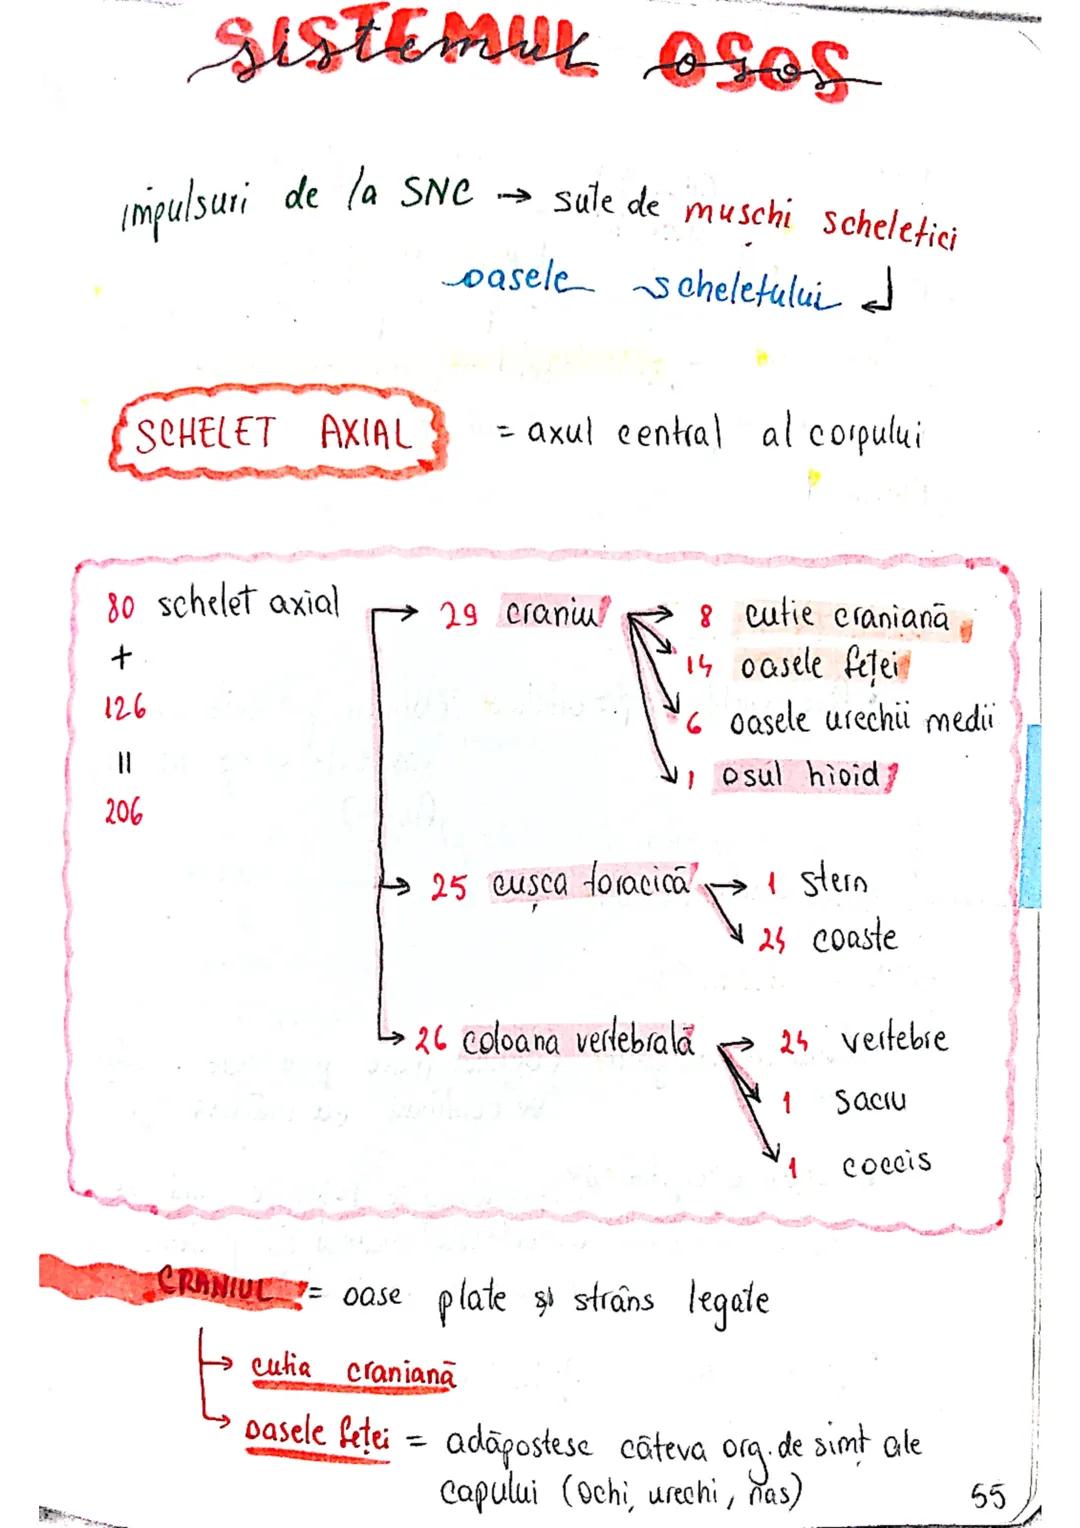 SISTEMUL OSOS
impulsuri de la SNC → sute de mușchi scheletici
oasele scheletului ↲
SCHELET AXIAL = axul central al corpului
80 schelet axial → 29 craniu → 8 cutie craniană
+ 14 oasele feței
126 6 oasele urechii medii
= 1 osul hioid
206
→ 25 cușca toracică → 1 stern
24 coaste
→ 26 coloana vertebrală → 24 vertebre
1 sacru
1 coccis
CRANIUL = oase plate și strâns legate
→ cutia craniană
→ oasele feței = adăpostesc câteva org. de simț ale
capului (ochi, urechi, nas)
55